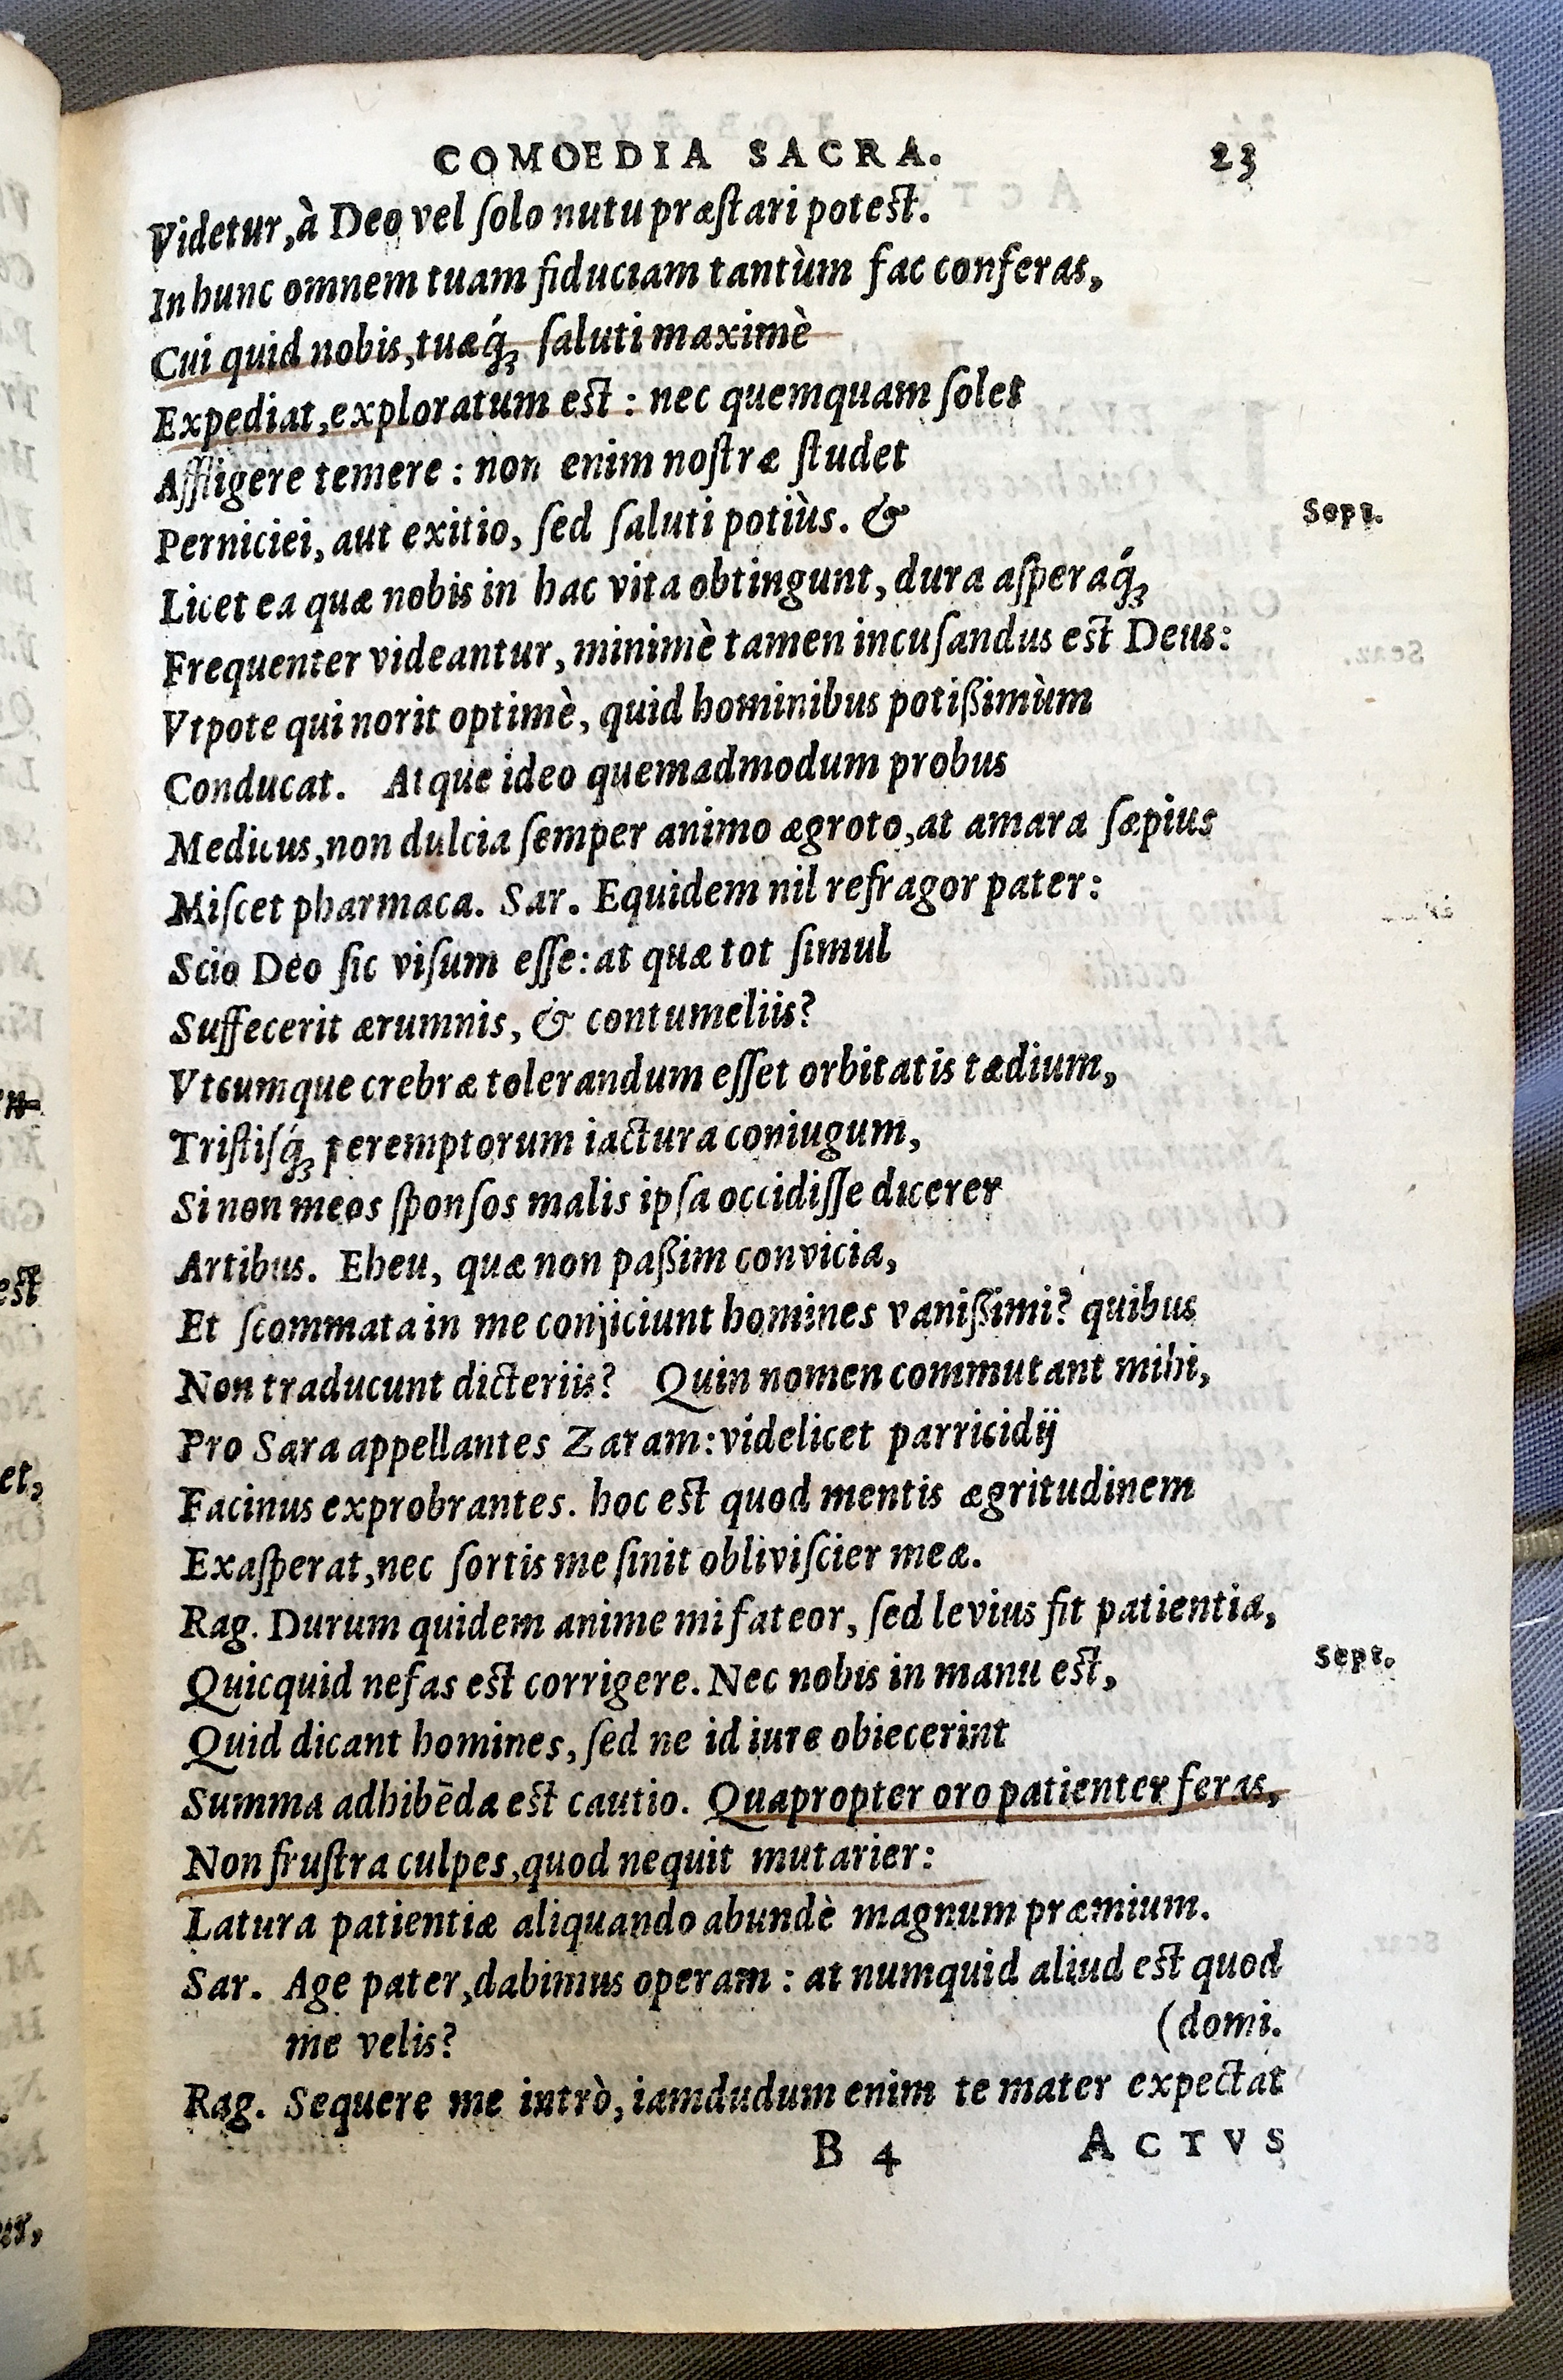 COMOEDIA SACRA. 23
Videtur, à Deo vel ſolo nutu præſtari poteſt.
In hunc omnem tuam fiduciam tantùm fac conferas,
Cui quid nobis, tuæq́ꝫ ſaluti maximè
Expediat, exploratum eſt : nec quemquam ſolet
Affligere temere : non enim noſtræ ſtudet
Perniciei, aut exitio, ſed ſaluti potiùs. & Sept.
Licet ea quæ nobis in hac vita obtingunt, dura aſperaq́ꝫ
Frequenter videantur, minimè tamen incuſandus eſt Deus:
Vtpote qui norit optimè, quid hominibus potißimùm
Conducat. Atque ideo quemadmodum probus
Medicus, non dulcia ſemper animo ægroto, at amara ſæpius
Miſcet pharmaca. Sar. Equidem nil refragor pater:
Scio Deo ſic viſum eſſe: at quæ tot ſimul
Suffecerit ærumnis, & contumeliis?
Vtcumque crebræ tolerandum eſſet orbitatis tædium,
Triſtiſq́ꝫ peremptorum iactura coniugum,
Si non meos ſponſos malis ipſa occidiſſe dicerer
Artibus. Eheu, quæ non paßim convicia,
Et ſcommata in me conjiciunt homines vanißimi? quibus
Non traducunt dicteriis? Quin nomen commutant mihi,
Pro Sara appellantes Zaram: videlicet parricidij
Facinus exprobrantes. hoc eſt quod mentis ægritudinem
Exaſperat, nec ſortis me ſinit obliviſcier meæ.
Rag. Durum quidem anime mi fateor, ſed levius fit patientia,
Quicquid nefas eſt corrigere. Nec nobis in manu eſt, Sept.
Quid dicant homines, ſed ne id iure obiecerint
Summa adhibēda eſt cautio. Quapropter oro patienter feras,
Non fruſtra culpes, quod nequit mutarier:
Latura patientiæ aliquando abundè magnum præmium.
Sar. Age pater, dabimus operam : at numquid aliud eſt quod
me velis? (domi.
Rag. Sequere me intrò, iamdudum enim te mater expectat
B 4 ACTVS